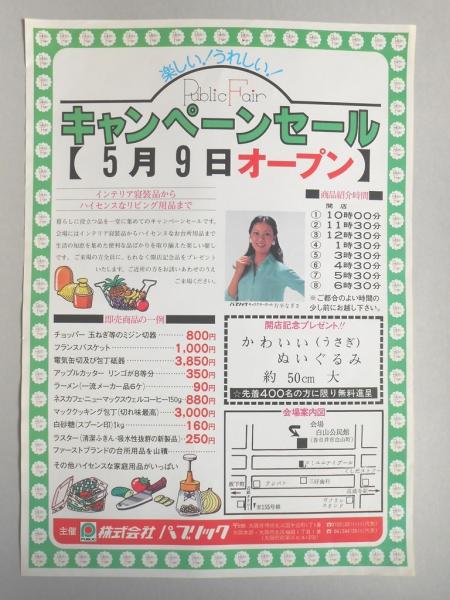 楽しい!うれしい!
Public Fair
キャンペーンセール
【5月9日オープン】
インテリア寝装品から
ハイセンスなリビング用品まで
暮らしに役立つ品を一堂に集めてのキャンペーンセールです。
会場にはインテリア寝装品からハイセンスなお台所用品まで
生活の知恵を集めた便利な品ばかりを取り揃えた楽しい催し
です。ご来場の方全員に、もれなく開店記念品をプレゼント
いたします。ご近所の方をお誘いあわせのうえ
ご来場ください。
商品紹介時間
開店
① 10時00分
② 11時30分
③ 12時30分
④ 1時30分
⑤ 3時30分
⑥ 4時30分
⑦ 5時30分
⑧ 6時30分
※ご都合のよい時間の
少し前にお越し下さい。
即売商品の一例
チョッパー 玉ねぎ等のミジン切器 800円
フランスバスケット 1,000円
電気缶切及び包丁砥器 3,850円
アップルカッター リンゴが8等分 350円
ラーメン(一流メーカー品6ケ) 90円
ネスカフェ・ニューマックスウェルコーヒー150g 880円
マッククッキング包丁(切れ味最高) 3,000円
白砂糖(スプーン印)1kg 160円
ラスター(清潔ふきん・吸水性抜群の新製品) 250円
ファーストブランドの台所用品を山積
その他ハイセンスな家庭用品がいっぱい
開店記念プレゼント!!
かわいい(うさぎ)
ぬいぐるみ
約50cm大
☆先着400名の方に限り無料進呈
会場案内図
会場
白山公民館
(春日井市白山町)
主催
株式会社 パブリック